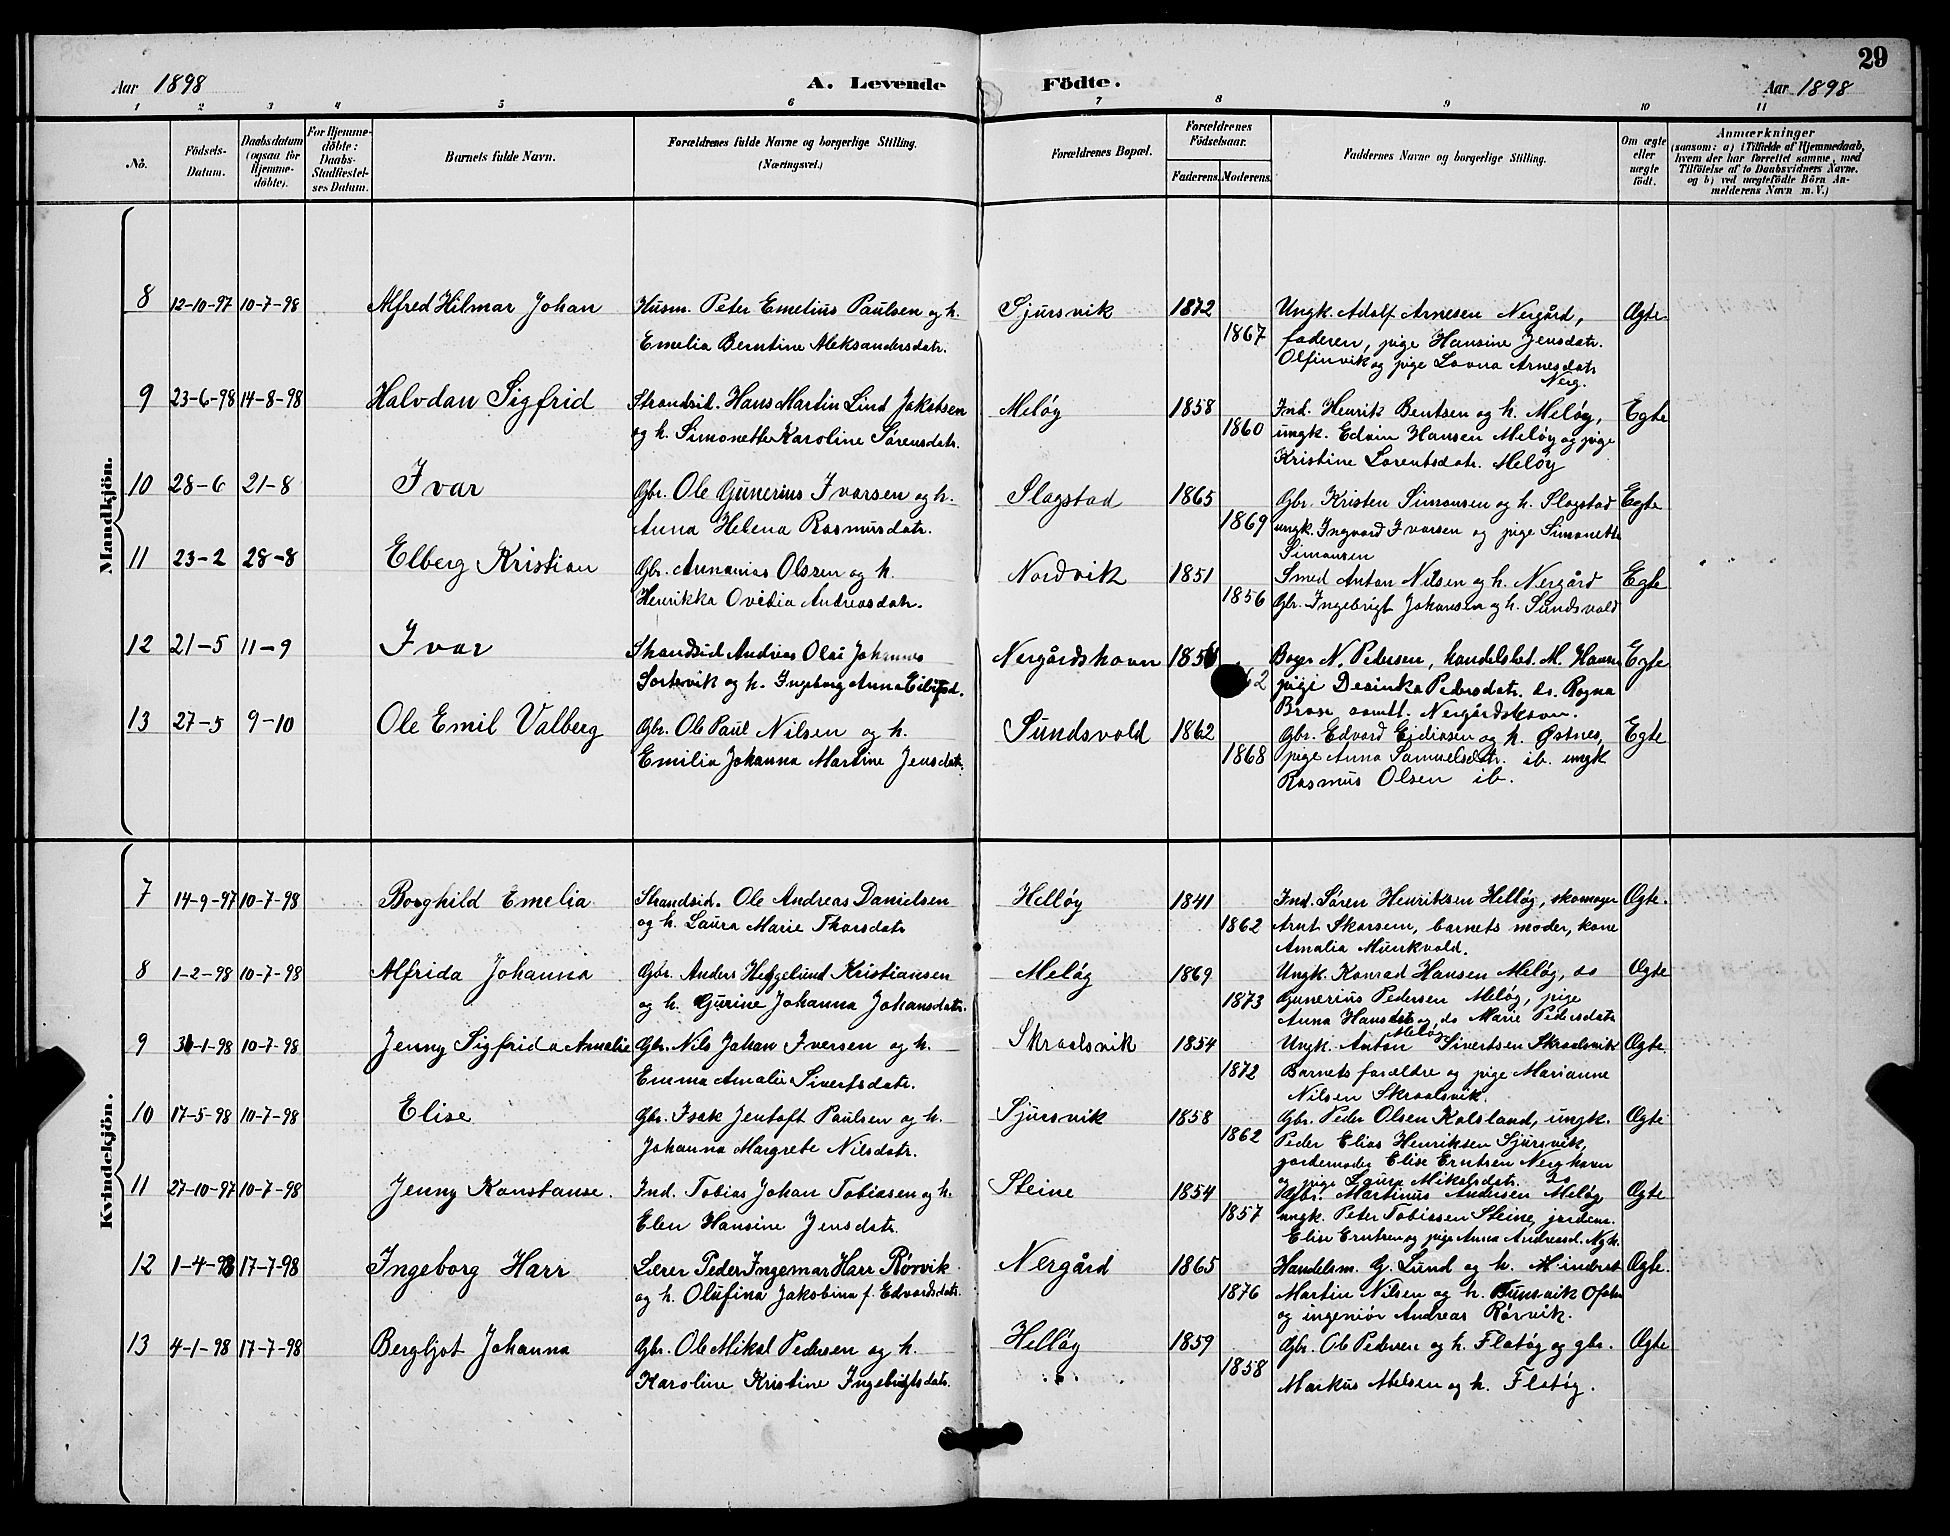 29
Aar 1898
A. Levende Födte.
Aar 1898
1 2 3 4 5 6 7 8 9 10 11
No.
Födsels-Datum.
Daabsdatum (ogsaa for Hjemmedöbte).
For Hjemmedöbte: Daabs-Stadfæstelses Datum.
Barnets fulde Navn.
Forældrenes fulde Navne og borgerlige Stilling.
(Næringsvei.)
Forældrenes Bopæl.
Forældrenes Födselsaar.
Faderens. Moderens.
Faddernes Navne og borgerlige Stilling.
Om ægte eller uægte födt.
Anmærkninger
(saasom: a) i Tilfælde af Hjemmedaab, hvem der har forrettet samme, med Tilföielse af to Daabsvidners Navne. og b) ved uægtefödte Börn Anmelderens Navn m. V.)
Mandkjön.
8 12-10-97 10-7-98 Alfred Hilmar Johan Husm. Peter Emelius Paulsen og h. Sjursvik 1872 Ungk. Adolf Arnesen Nergård, Ægte
Emelia Berntine Aleksandersdatr. 1867 faderen, pige Hansine Jensdatr.
Olfinvik og pige Lovna Arnesdatr
Nerg.
9 23-6-98 14-8-98 Halvdan Sigfrid Strandsid. Hans Martin Lind Jakobsen Meløy 1858 Ind. Henrik Bentsen og h. Meløy, Egte
og h. Simonette Karoline Sørensdatr. 1860 ungk. Edvin Hansen Meløy og pige
Kristine Lorentsdatr. Meløy
10 28-6 21-8 Ivar Gbr. Ole Gunerius Ivarsen og h. Slagstad 1865 Gbr. Kristen Simonsen og h. Slagstad Egte
Anna Helena Rasmusdatr. 1869 ungk. Ingvard Ivarsen og pige Simonette
Simonsen
11 23-2 28-8 Elberg Kristian Gbr. Annanias Olssen og h. Nordvik 1851 Smed Anton Nilsen og h. Nergård Egte
Henrikka Ovidia Andreasdatr. 1856 Gbr. Ingebrigt Johansen og h. Sundsvold
12 21-5 11-9 Ivar Strandsid Andreas Olai Johannes Nergårdshavn Boger N. Pedersen, handelsbet. M. Havn Egte
Sortevik og h. Ingeborg Anna pige Desinka Pedersdatr. do. Ragna
Nergårdshavn.
13 27-5 9-10 Ole Emil Valberg Gbr. Ole Paul Nilsen og h. Sundsvold 1862 Gbr. Edvard Eidissen og h. Østnes, Egte
Emilia Johanna Martine Jensdatr. 1868 pige Anna Samuelsdatr. ib. ungk
Rasmus Olsen ib.
Kvindekjön.
7 14-9-97 10-7-98 Borghild Emelia Strandsid. Ole Andreas Danielsen Helløy 1841 Ind. Søren Henriksen Helløy, skomager Ægte.
og h. Laura Marie Thorsdatr 1862 Arnt Skorsem, barnets moder, kone
Amalia Munkvold.
8 1-2-98 10-7-98 Alfrida Johanna Gbr. Anders Heggelund Kristiansen Meløy 1869 Ungk. Konrad Hansen Meløy, do Ægte
og h. Gurine Johanna Johansdatr. 1873 Gunerius Pedersen Meløy, pige
Anna Hansdatr og do Marie Pedersdatr
Meløy
9 1-98 10-7-98 Jenny Sigfrida Amalie Gbr. Nils Johan Iversen og h. Skraalsvik 1854 Ungk. Anton Sivertsen Skraalsvik Ægte.
Emma Amalie Sivertsdatr. 1872 Barnets forældre og pige Marianne
Nilsen Skraalsvik.
10 17-5-98 10-7-98 Elise Gbr. Isak Jentoft Paulsen og h. Sjursvik 1858 Gbr. Peder Olsen Kalsland, ungk. Ægte
Johanna Margrete Nilsdatr. 1862 Peder Elias Henriksen Sjursvik,
jordemoder Elise Erntsen Nerghavn
og pige Laura Mikalsdatr. do
11 27-10-97 10-7-98 Jenny Konstanse. Ind. Tobias Johan Tobiasen og h. Steine 1854 Gbr. Martinus Andersen Meløy Ægte
Elen Hansine Jensdatr. 1857 ungk. Peter Tobiassen Steine, jordem.
Elise Erntsen og pige Anna Andreasd. Ngh.
12 1-4-98 17-7-98 Ingeborg Harr Lærer Peder Ingemar Harr Rørvik Nergård 1865 Handelsm. G. Lund og h. Ægte.
og h. Olufina Jakobina f. Edvardsdatr. 1876 Martin Nilsen og h.
og ingeniør Andreas Rørvik.
13 4-1-98 17-7-98 Bergljot Johanna Gbr. Ole Mikal Pedersen og h. Helløy 1859 Gbr. Ob Pedersen og h. Flatøy og gbr. Ægte
Karoline Kristine Ingebrigtsdatr. 1858 Markus h. Flatøy.